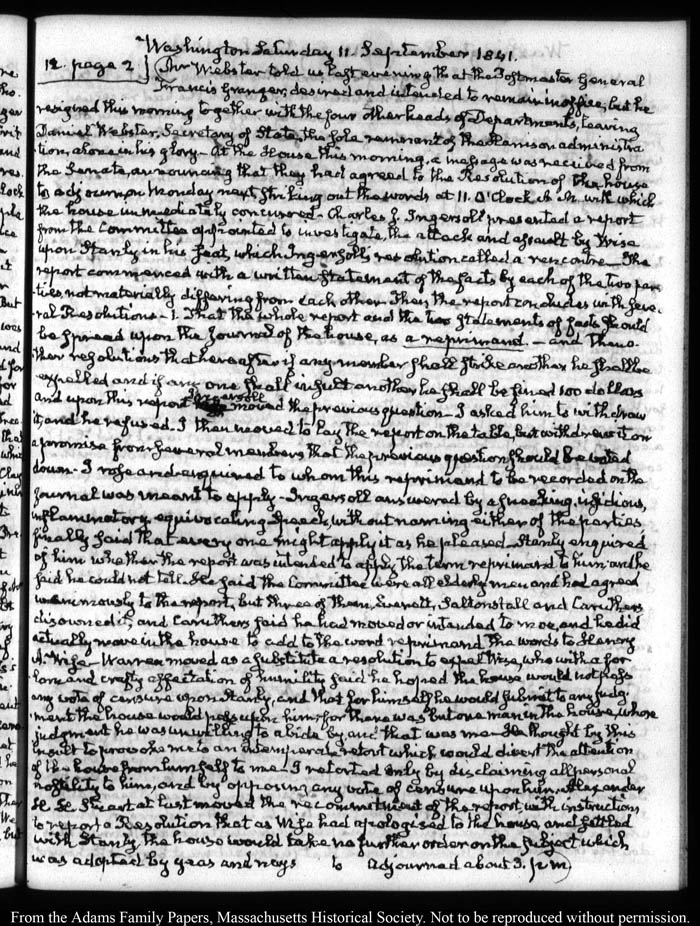 Washington Saturday 11. September 1841.
12. page 2 } Mr Webster told us last evening that the Postmaster General
Francis Granger, desired and intended to remain in office, but he
resigned this morning together with the four other heads of Departments, leaving
Daniel Webster, Secretary of State, the sole remnant of the Harrison administra-
tion, alone in his glory— At the House this morning, a message was received from
the Senate, announcing that they had agreed to the Resolution of the house
to adjourn on Monday next striking out the words at 11. O'Clock A.M. with which
the house immediately concurred— Charles J. Ingersoll presented a report
from the Committee appointed to investigate, the attack and assault by Wise
upon Stanly in his seat, which Ingersoll's resolution called a rencontre— The
report commenced with a written statement of the facts by each of the two par-
ties, not materially differing from each other— Then the report concludes with seve-
ral Resolutions— 1. That the whole report and the two statements of facts should
be spread upon the Journal of the house, as a reprimand.— and then o-
ther resolutions that hereafter if any member shall strike another he shall be
expelled and if any one shall insult another he shall be fined 100 dollars
and upon this report Ingersoll moved the previous question— I asked him to withdraw
it, and he refused— I then moved to lay the report on the table, but withdrew it on
a promise from several members that the previous question should be voted
down— I rose and enquired to whom this reprimand to be recorded on the
Journal was meant to apply— Ingersoll answered by a sneaking, insidious,
inflammatory, equivocating speech, without naming either of the parties
finally said that every one might apply it as he pleased— Stanly enquired
of him whether the report was intended to apply the term reprimand to him, and he
said he could not tell. He said the Committee were all elderly men and had agreed
unanimously to the report, but three of them, Everett, Saltonstall and Caruthers
disowned it, and Caruthers said he had moved or intended to move, and he did
actually move in the house to add to the word reprimand the words to Henry
A. Wise— Warren moved as a substitute a resolution to expel Wise, who with a for-
lorn and crafty affectation of humility said he hoped the house would not pass
any vote of censure upon Stanly, and that for himself he would submit to any judg-
ment the house would pass upon him; for there was but one man in the house, whose
judgment he was unwilling to abide by, and that was me— He thought by this
insult to provoke me to an intemperate retort which would divert the attention
of the house from himself to me— I retorted only by disclaiming all personal
hostility to him, and by opposing any vote of censure upon him. Alexander
H. H. Stuart at last moved the recommitment of the report with instructions
to report a Resolution that as Wise had apologised to the house, and settled
with Stanly the house would take no further order on the subject which
was adopted by yeas and nays to adjourned about 3. p.m.
From the Adams Family Papers, Massachusetts Historical Society. Not to be reproduced without permission.